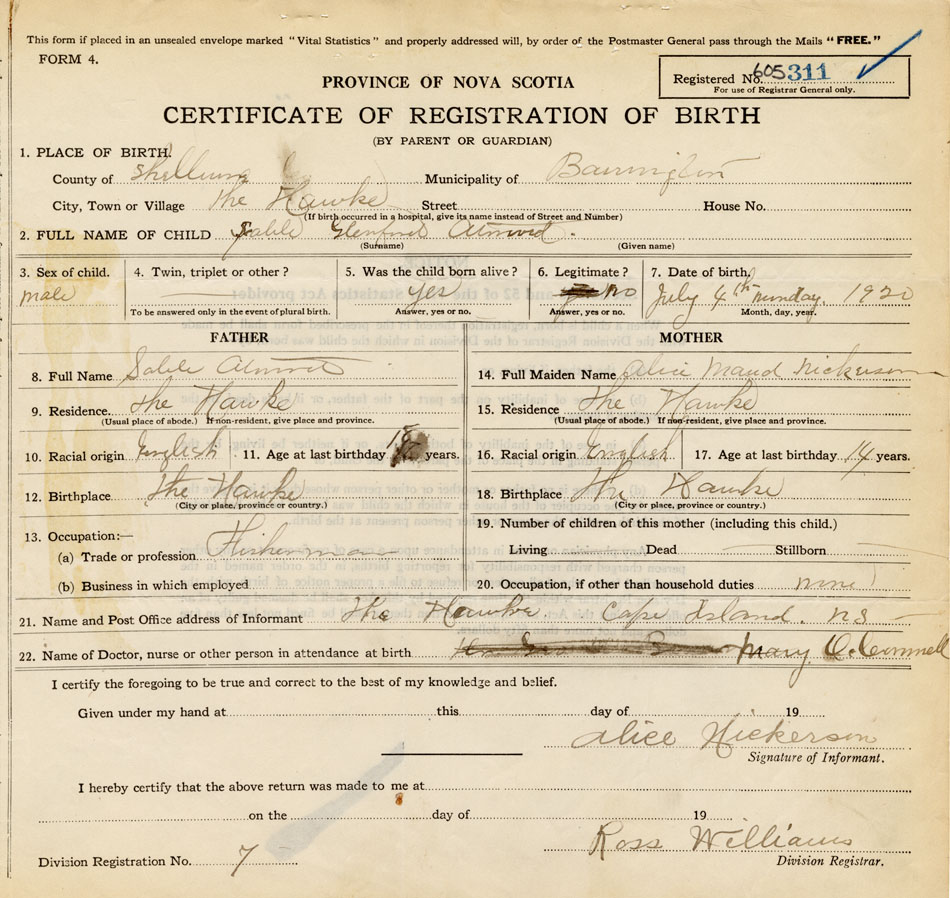 This form if placed in an unsealed envelope marked "Vital Statistics" and properly addressed will, by order of the Postmaster General pass through the Mails "FREE."
FORM 4.
Registered No. 605311
For use of Registrar General only.
PROVINCE OF NOVA SCOTIA
CERTIFICATE OF REGISTRATION OF BIRTH
(BY PARENT OR GUARDIAN)
1. PLACE OF BIRTH.
County of Municipality of Barrington
City, Town or Village The Hawke Street House No.
(If birth occurred in a hospital, give its name instead of Street and Number)
2. FULL NAME OF CHILD Glenford Atwood.
(Surname) (Given name)
3. Sex of child. 4. Twin, triplet or other? 5. Was the child born alive? 6. Legitimate? 7. Date of birth.
male yes no July 4th 1920
To be answered only in the event of plural birth. Answer, yes or no. Answer, yes or no. Month, day, year.
FATHER MOTHER
8. Full Name Atwood 14. Full Maiden Name Alice Maud Nickerson
9. Residence. The Hawke 15. Residence The Hawke
(Usual place of abode.) If non-resident, give place and province. (Usual place of abode.) If non-resident, give place and province.
10. Racial origin English 11. Age at last birthday years. 16. Racial origin English 17. Age at last birthday 14 years.
12. Birthplace The Hawke 18. Birthplace The Hawke
(City or place, province or country.) (City or place, province or country.)
13. Occupation:— 19. Number of children of this mother (including this child.)
(a) Trade or profession Fisherman Living Dead Stillborn
(b) Business in which employed 20. Occupation, if other than household duties none
21. Name and Post Office address of Informant The Hawke Cape Island. NS
22. Name of Doctor, nurse or other person in attendance at birth Mary O. Connell
I certify the foregoing to be true and correct to the best of my knowledge and belief.
Given under my hand at this day of 19
Alice Nickerson
Signature of Informant.
I hereby certify that the above return was made to me at
on the day of 19
Ross Williams
Division Registration No. 7 Division Registrar.